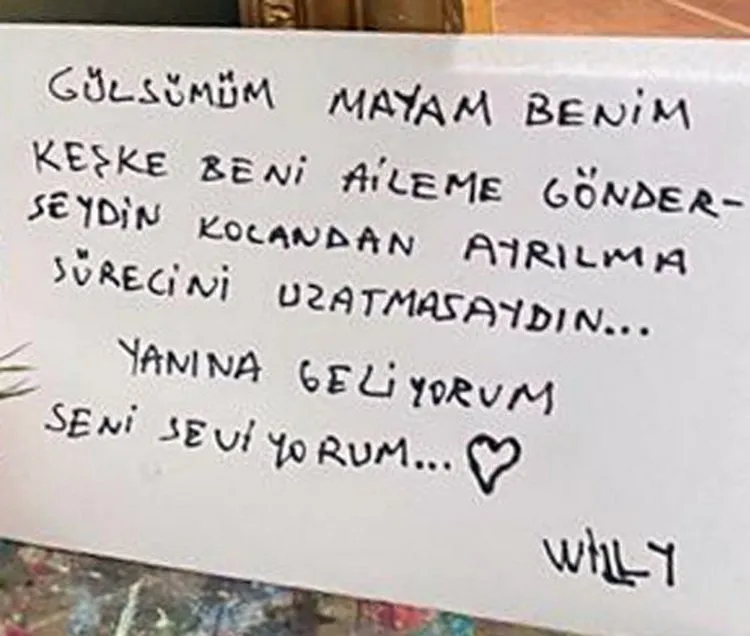 GÜLSÜMÜM MAYAM BENİM
KEŞKE BENİ AİLEME GÖNDER-
SEYDİN KOCANDAN AYRILMA
SÜRECİNİ UZATMASAYDIN...
YANINA GELİYORUM
SENİ SEVİYORUM... ♡
WİLLY